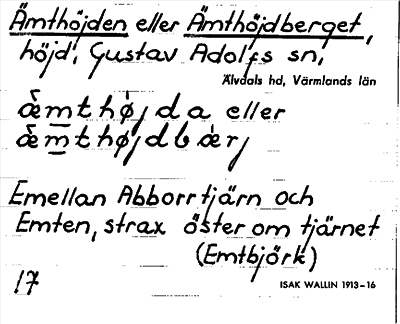 Ämthöjden eller Ämthöjdberget,
höjd, Gustav Adolfs sn,
Älvdals hd, Värmlands län
æ̀mthø̀jda eller
æ̀mthøjdbær̀j
Emellan Abborrtjärn och
Emten, strax öster om tjärnet
(Emtbjörk)
17
ISAK WALLIN 1913–16